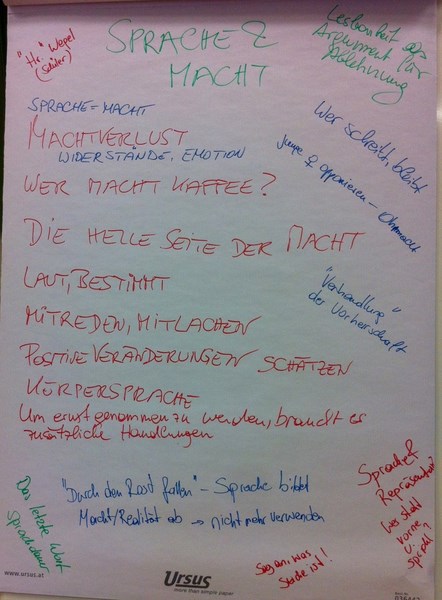 "Hr." Wepel
(Schüler)
SPRACHE &
MACHT
Lesbarkeit als
Argument für
Ablehnung
SPRACHE = MACHT
MACHTVERLUST
WIDERSTÄNDE, EMOTION
WER MACHT KAFFEE?
Wer schreibt, bleibt
Junge ♀ opponieren – Ohnmacht
DIE HELLE SEITE DER MACHT
LAUT, BESTIMMT
"Verhandlung"
der Vorherrschaft
MITREDEN, MITLACHEN
POSITIVE VERÄNDERUNGEN SCHÄTZEN
KÖRPERSPRACHE
Um ernst genommen zu werden, braucht es
zusätzliche Handlungen
"Durch den Rost fallen" – Sprache bildet
Macht/Realität ab → nicht mehr verwenden
Das letzte Wort
Sprachdauer
Sprache &
Repräsentation
Wer steht
vorne
u.
spricht?
Sagen, was
Sache ist!
www.ursus.at
Ursus
more than simple paper